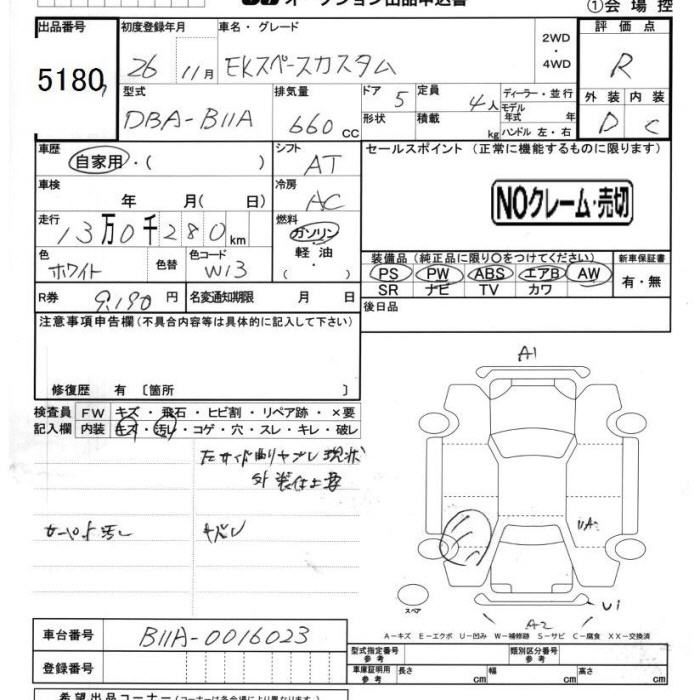 オークション出品申込書
①会場控
出品番号 初度登録年月 車名・グレード 2WD・4WD 評価点
5180 26 11月 EKスペースカスタム R
型式 排気量 ドア 5 定員 4人 ディーラー・並行 外装 内装
DBA-B11A 660cc 形状 積載 kg モデル年式 年式 ハンドル 左・右 D C
車歴 自家用・( ) シフト AT セールスポイント(正常に機能するものに限ります)
車検 年 月( 日) 冷房 AC NOクレーム・売切
走行 13万0千280km 燃料 ガソリン・軽油・( )
色 ホワイト 色替 色コード W13
装備品(純正品に限り〇をつけてください) 新車保証書
PS PW ABS エアB AW 有・無
SR ナビ TV カワ
R券 9,190円 名変通知期限 月 日 後日品
注意事項申告欄(不具合内容等は具体的に記入して下さい)
修復歴 有〔箇所 〕
検査員記入欄 FW キズ・飛石・ヒビ割・リペア跡・×要
内装 キズ・汚レ・コゲ・穴・スレ・キレ・破レ
現状
カーペット汚レ
A1
A2
U1
スペア
A-キズ E-エクボ U-凹み W-補修跡 S-サビ C-腐食 XX-交換済
車台番号 B11A-0016023
型式指定番号 参考 類別区分番号 参考
登録番号 車庫証明用 参考 長さ cm 幅 cm 高さ cm
希望出品コーナー(コーナーは各会場により異なります。)